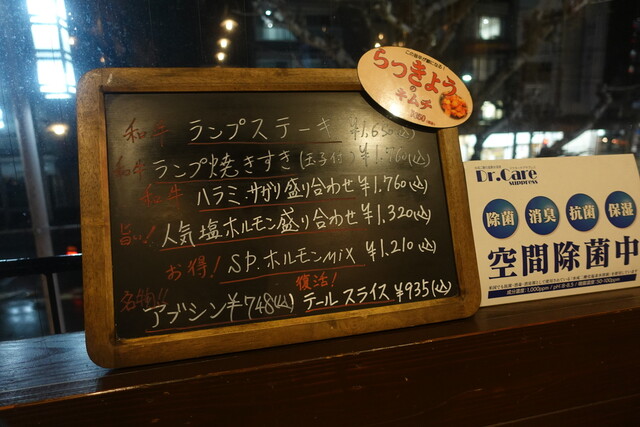 和牛 ランプステーキ ¥1,650(込)
和牛 ランプ焼きすき(玉子付) ¥1,760(込)
和牛 ハラミ・サガリ盛り合わせ ¥1,760(込)
旨い! 人気塩ホルモン盛り合わせ ¥1,320(込)
お得! SP.ホルモンMIX ¥1,210(込)
復活!
名物!! アブシン¥748(込) テールスライス¥935(込)
らっきょう
の
キムチ
Dr.Care
除菌 消臭 抗菌 保湿
空間除菌中